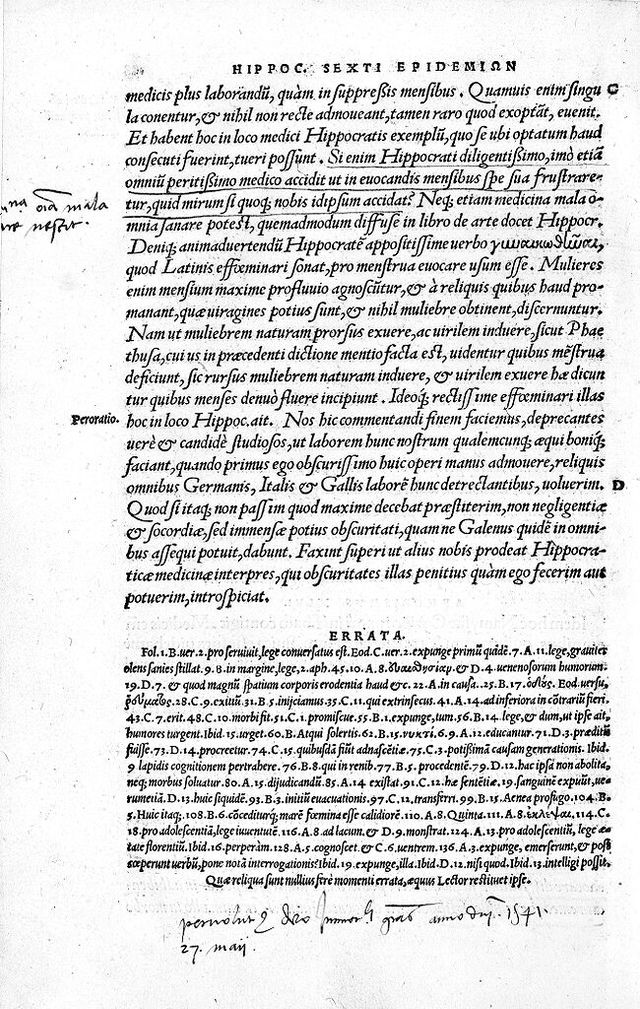 HIPPOC. SEXTI EPIDEMIΩN
medicis plus laborandũ, quàm in suppreſsis menſibus. Quamuis enim ſingu C
la conentur, & nihil non recte admoueant, tamen raro quod exoptãt, euenit.
Et habent hoc in loco medici Hippocratis exemplũ, quo ſe ubi optatum haud
conſecuti fuerint, tueri poſſunt. Si enim Hippocrati diligentiſsimo, imò etiã
omniũ peritiſsimo medico accidit ut in euocandis menſibus ſpe ſua fruſtrare-
tur, quid mirum ſi quoq; nobis idipſum accidat? Neq; etiam medicina mala o-
oĩa mala
mnia ſanare poteſt, quemadmodum diffuſe in libro de arte docet Hippocr.
Deniq; animaduertendũ Hippocratẽ appoſitiſsime uerbo γυναικωθῆναι,
quod Latinis effœminari ſonat, pro menſtrua euocare uſum eſſe. Mulieres
enim menſium maxime profluuio agnoſcũtur, & à reliquis quibus haud pro-
manant, quæ uiragines potius ſunt, & nihil muliebre obtinent, diſcernuntur.
Nam ut muliebrem naturam prorſus exuere, ac uirilem induere, ſicut Phae
thuſa, cuius in præcedenti dictione mentio facta eſt, uidentur quibus mẽſtrua
deficiunt, ſic rurſus muliebrem naturam induere, & uirilem exuere hæ dicun
tur quibus menſes denuò fluere incipiunt. Ideoq; rectiſsime effœminari illas
Peroratio. hoc in loco Hippoc. ait. Nos hic commentandi finem faciemus, deprecantes
uerè & candidè ſtudioſos, ut laborem hunc noſtrum qualemcunq; æqui boniq;
faciant, quando primus ego obſcuriſsimo huic operi manus admouere, reliquis
omnibus Germanis, Italis & Gallis laborẽ hunc detrectantibus, uoluerim. D
Quod ſi itaq; non paſsim quod maxime decebat præſtiterim, non negligentiæ
& ſocordiæ, ſed immenſæ potius obſcuritati, quam ne Galenus quidẽ in omni-
bus aſſequi potuit, dabunt. Faxint ſuperi ut alius nobis prodeat Hippocra-
ticæ medicinæ interpres, qui obſcuritates illas penitius quàm ego fecerim aut
potuerim, introſpiciat.
ERRATA.
Fol. 1. B. uer. 2. pro ſeruiuit, lege conuerſatus eſt. Eod. C. uer. 2. expunge primũ quidẽ. 7. A. 11. lege, grauiter
olens ſanies ſtillat. 9. 8. in margine, lege, 2. aph. 45. 10. A. 8. & D. 4. uenenoſorum humorum.
19. D. 7. & quod magnũ ſpatium corporis erodentia haud &c. 22. A. in cauſa. 25. B. 17. Eod. uerſu,
28. C. 9. exitiũ. 31. B. 5. inijciamus. 35. C. 11. qui extrinſecus. 41. A. 14. ad inferiora in cõtrariũ fieri.
43. C. 7. erit. 48. C. 10. morbi fit. 51. C. 1. promiſcue. 55. B. 1. expunge, tum. 56. B. 14. lege, & dum, ut ipſe ait,
humores turgent. Ibid. 15. urget. 60. B. Atqui ſolertis. 62. B. 15. νυκτὶ. 69. A. 12. educantur. 71. D. 3. præditũ
fuiſſe. 73. D. 14. procreetur. 74. C. 15. quibuſdã fiũt adnaſcẽtiæ. 75. C. 3. potiſsimã cauſam generationis. Ibid.
9 lapidis cognitionem pertrahere. 76. B. 8. qui in renib. 77. B. 5. procedentẽ. 79. D. 12. hac ipſa non abolita,
neq; morbus ſoluatur. 80. A. 15. dijudicandũ. 85. A. 14 exiſtat. 91. C. 12. hæ ſentẽtiæ. 19. ſanguinẽ expuũt, ue-
rumetiã. D. 13. huic ſiquidẽ. 93. B. 3. initiũ euacuationis. 97. C. 12. transferri. 99. B. 15. Aenea profugo. 104. B.
5. Huic itaq;. 108. B. 6. cõcediturq; marẽ fœmina eſſe calidiorẽ. 110. A. 8. Quinta. 111. A. 8. ἐκλεῖψαι. 114. C.
18. pro adoleſcentiã, lege iuuentutẽ. 116. A. 8. ad lacum. & D. 9. monſtrat. 124. A. 13. pro adoleſcentiũ, lege æ-
tate florentiũ. Ibid. 16. perperàm. 128. A. 5. cognoſcet. & C. 6. uentrem. 136. A. 3. expunge, emerſerunt, & poſt
cœperunt uerbũ, pone nota interrogationis? Ibid. 19. expunge, illa. Ibid. D. 12. niſi quod. Ibid. 13. intelligi poſsit.
Quæ reliqua ſunt nullius ferè momenti errata, æquus Lector reſtituet ipſe.
deo anno 1541.
27. maij.